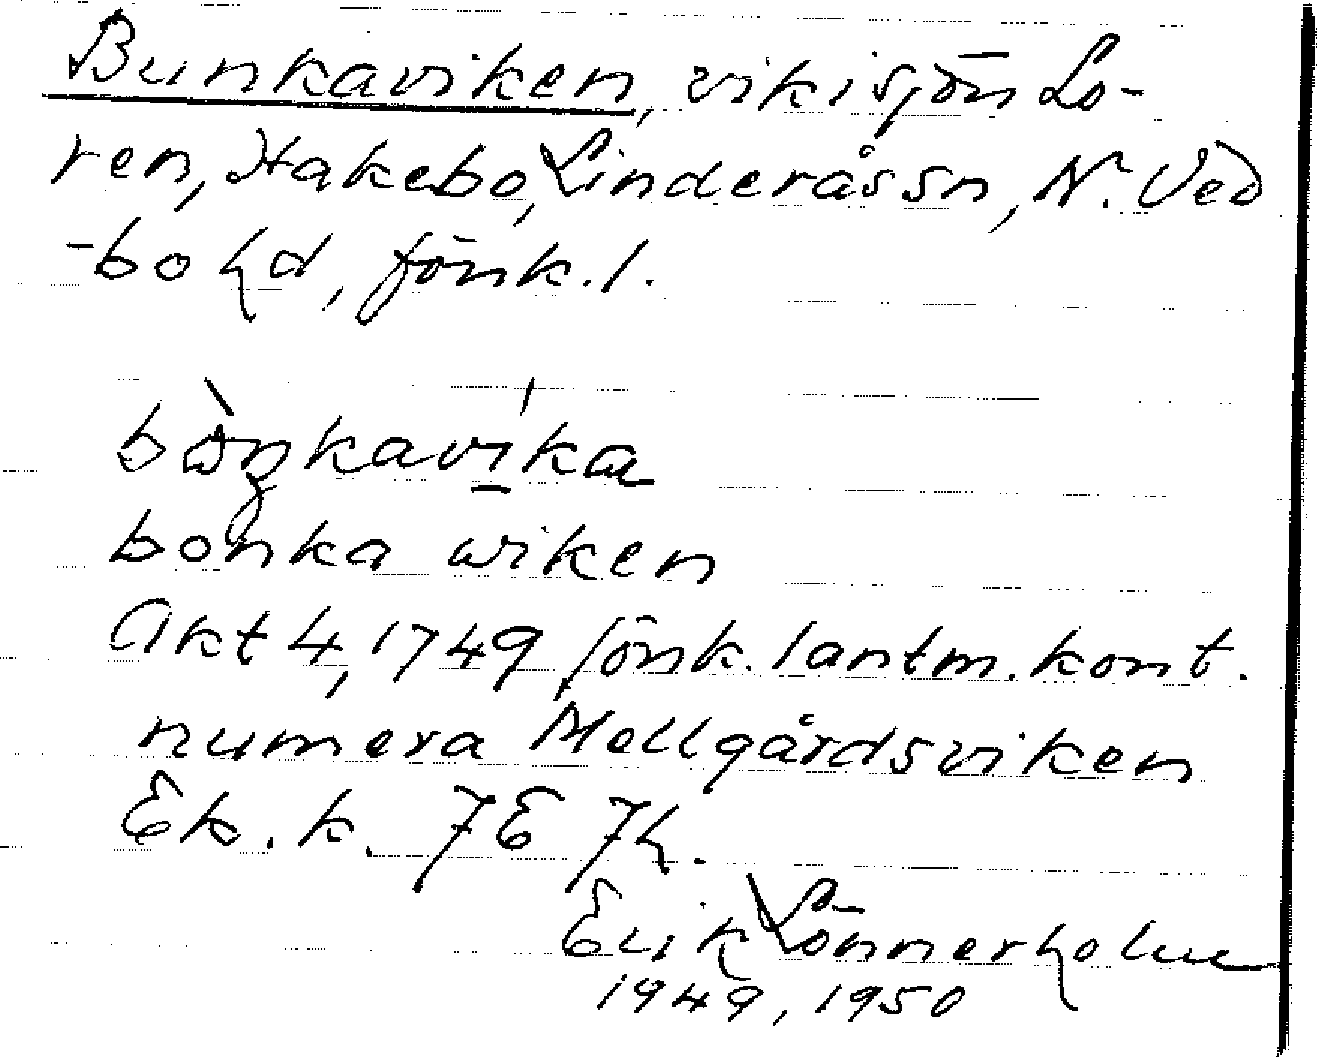 Bunkaviken, vik i sjön Lo-
ren, Hakebo, Linderås sn, N. Ved
-bo hd, Jönk. l.
bòŋkavíka
bonka wiken
Akt 4, 1749 Jönk. lantm. kont.
numera Mellgårdsviken
Ek. k. 7E 7h.
Erik Lönnerholm
1949, 1950